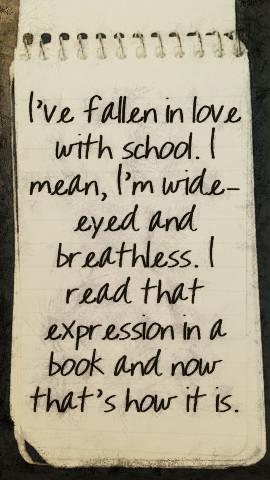 I've fallen in love
with school. I
mean, I'm wide-
eyed and
breathless. I
read that
expression in a
book and now
that's how it is.